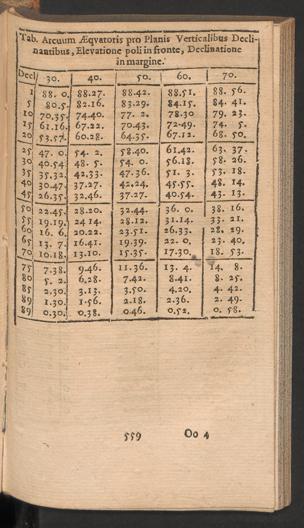 Tab. Arcuum Æqvatoris pro Planis Verticalibus Decli-
nantibus, Elevatione poli in fronte, Declinatione
in margine.
Decl 30. 40. 50. 60. 70.
1 88. 0. 88.27. 88.42. 88.51. 88. 56.
5 80.5. 82.16. 83.29. 84.15. 84. 41.
10 70.35. 74.40. 77. 2. 78.30 79. 23.
15 61.16. 67.22. 70.43. 72.49. 74. 5.
20 53.57. 60.28. 64.35. 67.12. 68. 50.
25 47. 0. 54. 2. 58.40. 61.42. 63. 37.
30 40.54. 48. 5. 54. 0. 56.18. 58. 26.
35 35.32. 42.33. 47.36. 51. 3. 53. 18.
40 30.47. 37.27. 42.24. 45.55. 48. 14.
45 26.35. 32.46. 37.27. 40.54. 43. 13.
50 22.45. 28.20. 32.44. 36. 0. 38. 16.
55 19.19. 24 14. 28.12. 31.14. 33. 21.
60 16. 6. 20.22. 23.51. 26.33. 28. 29.
65 13. 7. 16.41. 19.39. 22. 0. 23. 40.
70 10.18. 13.10. 15.35. 17.30. 18. 53.
75 7.38. 9.46. 11.36. 13. 4. 14. 8.
80 5. 2. 6.28. 7.42. 8.41. 8. 25.
85 2.30. 3.13. 3.50. 4.20. 4. 42.
89 1.30. 1.56. 2.18. 2.36. 2. 49.
89 0.30. 0.38. 0.46. 0.52. 0. 58.
559 Oo 4